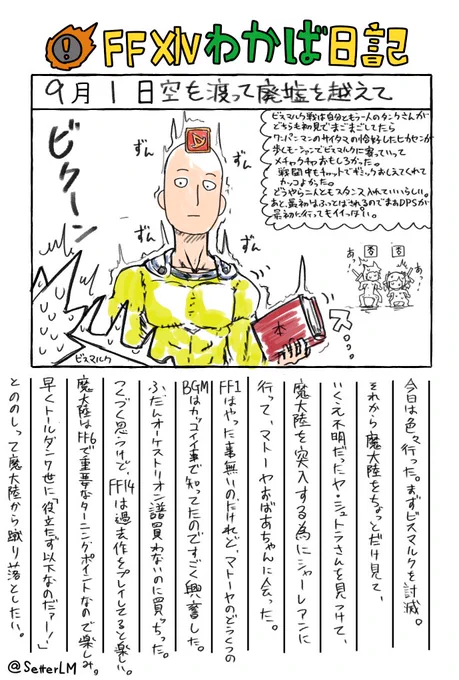 FFXIVわかば日記
9月1日空を渡って廃墟を越えて
ビスマルク戦は自分ともう一人のタンクさんが
どちらも初見でまごまごしてたら
ワンパンマンのサイタマの恰好したヒカセンが
歩くモーションでビスマルクに寄っていって
メチャクチャおもしろかった。
戦闘中もチャットでギミックおしえてくれて
カッコよかった。
どうやら二人ともスタンス入れていいらしい。
あと、最初はふっとばされるのでまあDPSが
最初に行ってもイイっぽい。
ビクーン
ずん
ずん
ずん
ずん
あっ
あっ
本
ス...
ビスマルク
今日は色々行った。まずビスマルクを討滅。
それから魔大陸をちょっとだけ見て、
いくえ不明だったヤ・シュトラさんを見つけて、
魔大陸を突入する為にシャーレアンに
行って、マトーヤおばあちゃんに会った。
FF1はやった事無いのだけれど、マトーヤのどうくつの
BGMはカッコイイ事で知ってたのですごく興奮した。
ふだんオーケストリオン譜買わないのに買っちった。
つくづく思うけど、FF14は過去作をプレイしてると楽しい。
魔大陸はFF6で重要なターニングポイントなので楽しみ。
早くトールダン7世に「役立たず以下なのだァー！」
とののしって魔大陸から蹴り落としたい。
@SetterLM